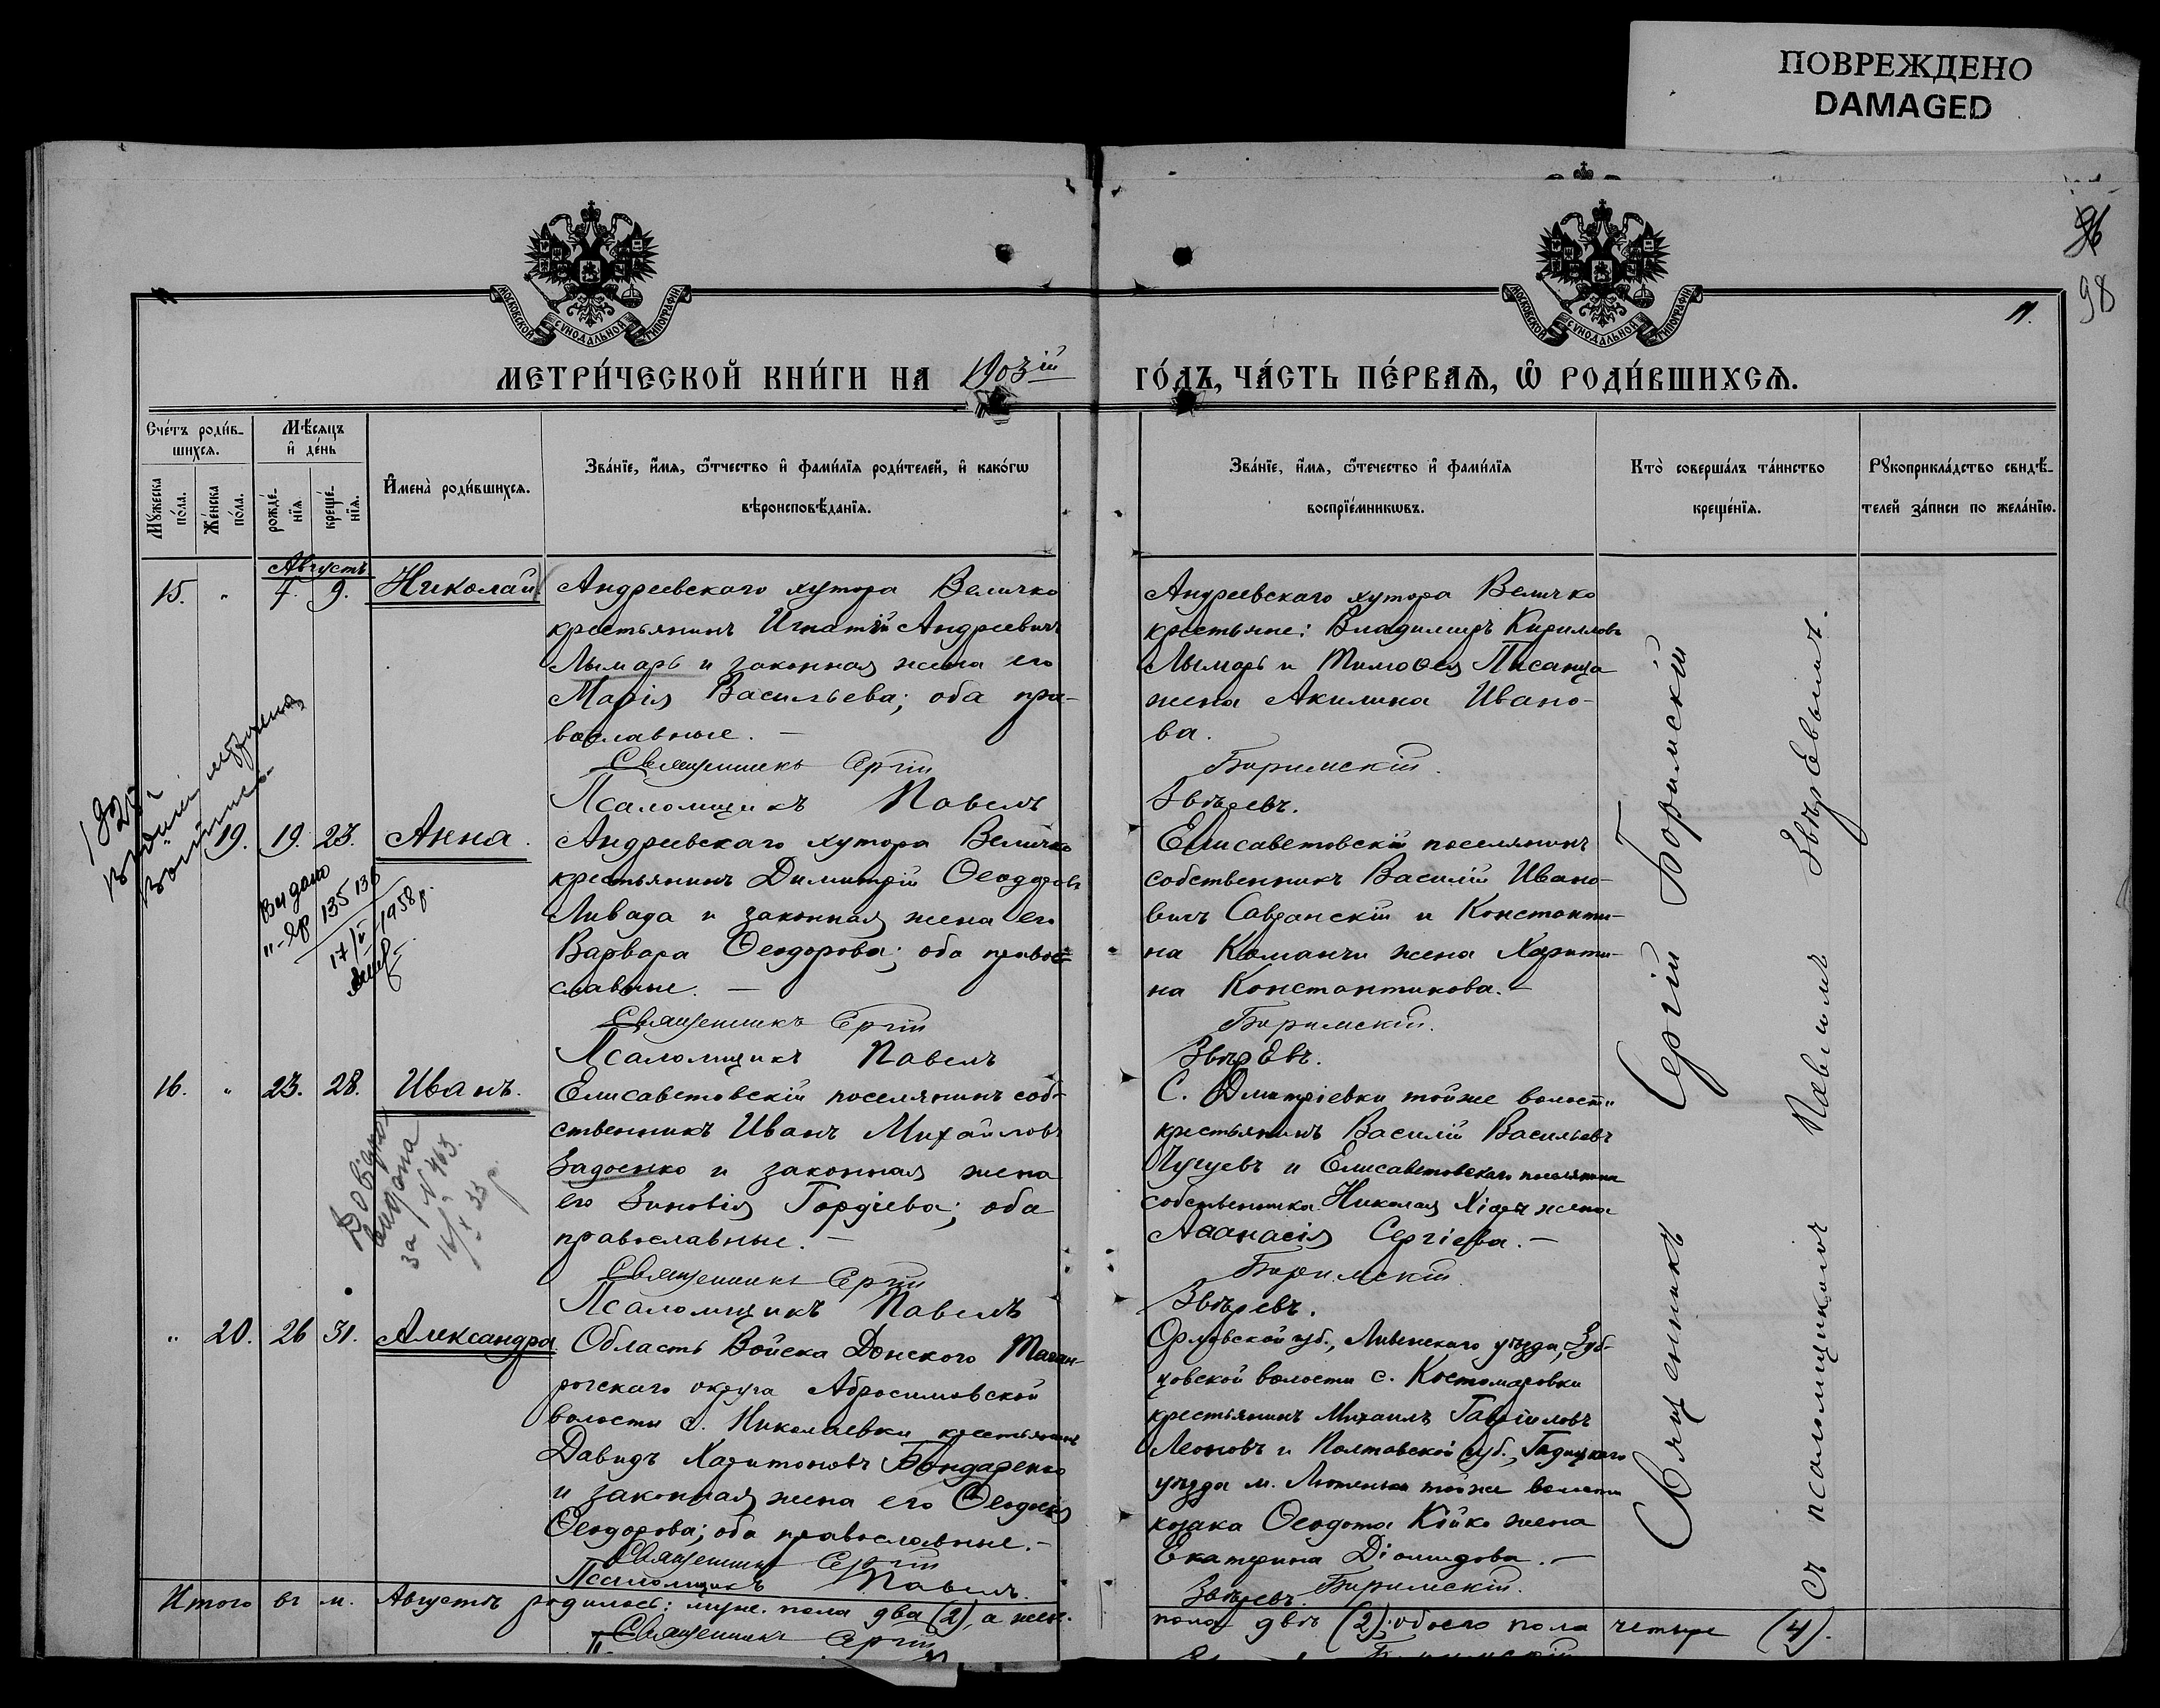 ПОВРЕЖДЕНО
DAMAGED
98
11.
МОСКОВСКОЙ СУНОДАЛЬНОЙ ТИПОГРАФІИ
МОСКОВСКОЙ СУНОДАЛЬНОЙ ТИПОГРАФІИ
МЕТРИ́ЧЕСКОЙ КНИ́ГИ НА 1903ій ГО́ДЪ, ЧА́СТЬ ПЕ́РВАѦ, Ѡ҆ РОДИ́ВШИХСѦ.
Сче́тъ роди́в-
шихсѧ.
Мꙋ́жеска по́ла.
Же́нска по́ла.
Мѣ́сѧцъ
и҆ де́нь
рожде́-
нїѧ
креще́-
нїѧ.
И҆мена̀ роди́вшихсѧ.
Зва́нїе, и҆́мѧ, ѻ҆́тчество и҆ фами́лїѧ роди́телей, и҆ како́гѡ
вѣроисповѣ́данїѧ.
Зва́нїе, и҆́мѧ, ѻ҆́течество и҆ фами́лїѧ
воспрїе́мникѡвъ.
Кто̀ соверша́лъ та́инство
креще́нїѧ.
Рꙋкоприкла́дство свидѣ́-
телей за́писи по жела́нїю.
Августъ
15. „ 4. 9. Николай
Андреевскаго хутора Величко
крестьянинъ Игнатій Андреевичъ
Лымарь и законная жена его
Марія Васильева; оба пра-
вославные. —
Священникъ Сергій
Псаломщикъ Павелъ
Андреевскаго хутора Величко
крестьяне: Владимиръ Кирилловъ
Лымарь и Тимоѳея Писанца
жена Акилина Ивано-
ва.
Боримскій.
Звѣревъ.
„ 19. 19. 23. Анна.
Видано
135136
17/V 1958 р.
Андреевскаго хутора Величко
крестьянинъ Димитрій Ѳеодоровъ
Ливада и законная жена его
Варвара Ѳеодорова; оба право-
славные. —
Священникъ Сергій
Псаломщикъ Павелъ
Елисаветовскій поселянинъ
собственникъ Василій Ивано-
вичъ Савранскій и Константи-
на Команчи жена Харити-
на Константинова. —
Боримскій.
Звѣревъ.
16. „ 23. 28. Иванъ.
Довідка
видана
за № 463.
Елисаветовскій поселянинъ соб-
ственникъ Иванъ Михайловъ
Задоенко и законная жена
его Зиновія Гордіева; оба
православные. —
Священникъ Сергій
Псаломщикъ Павелъ
С. Дмитріевки тойже волости
крестьянинъ Василій Васильевъ
Чугуевъ и Елисаветовскаго поселянина
собственника Николая жена
Аѳанасія Сергіева. —
Боримскій
Звѣревъ.
„ 20. 26 31. Александра
Область Войска Донского Таган-
рогскаго округа Абросимовской
волости с. Николаевки крестьянинъ
Давидъ Харитоновъ Бондаренко
и законная жена его Ѳеодосія
Ѳеодорова; оба православные. —
Священникъ Сергій
Псаломщикъ Павелъ.
Орловской губ., Ливенскаго уѣзда,
волости с. Костомаровки
крестьянинъ Михаилъ Гавриловъ
Леоновъ и Полтавской губ., Гадяцкаго
уѣзда м. Лютенька тойже волости
козака Ѳеодота Койко жена
Екатерина Діомидова. —
Боримскій.
Звѣревъ.
Священникъ Сергій Боримскій
съ псаломщикомъ Павломъ Звѣревымъ.
Итого въ м. Августѣ родилось: муж. пола два (2), а жен.
пола двѣ (2); обоего пола четыре (4).
Священникъ Сергій